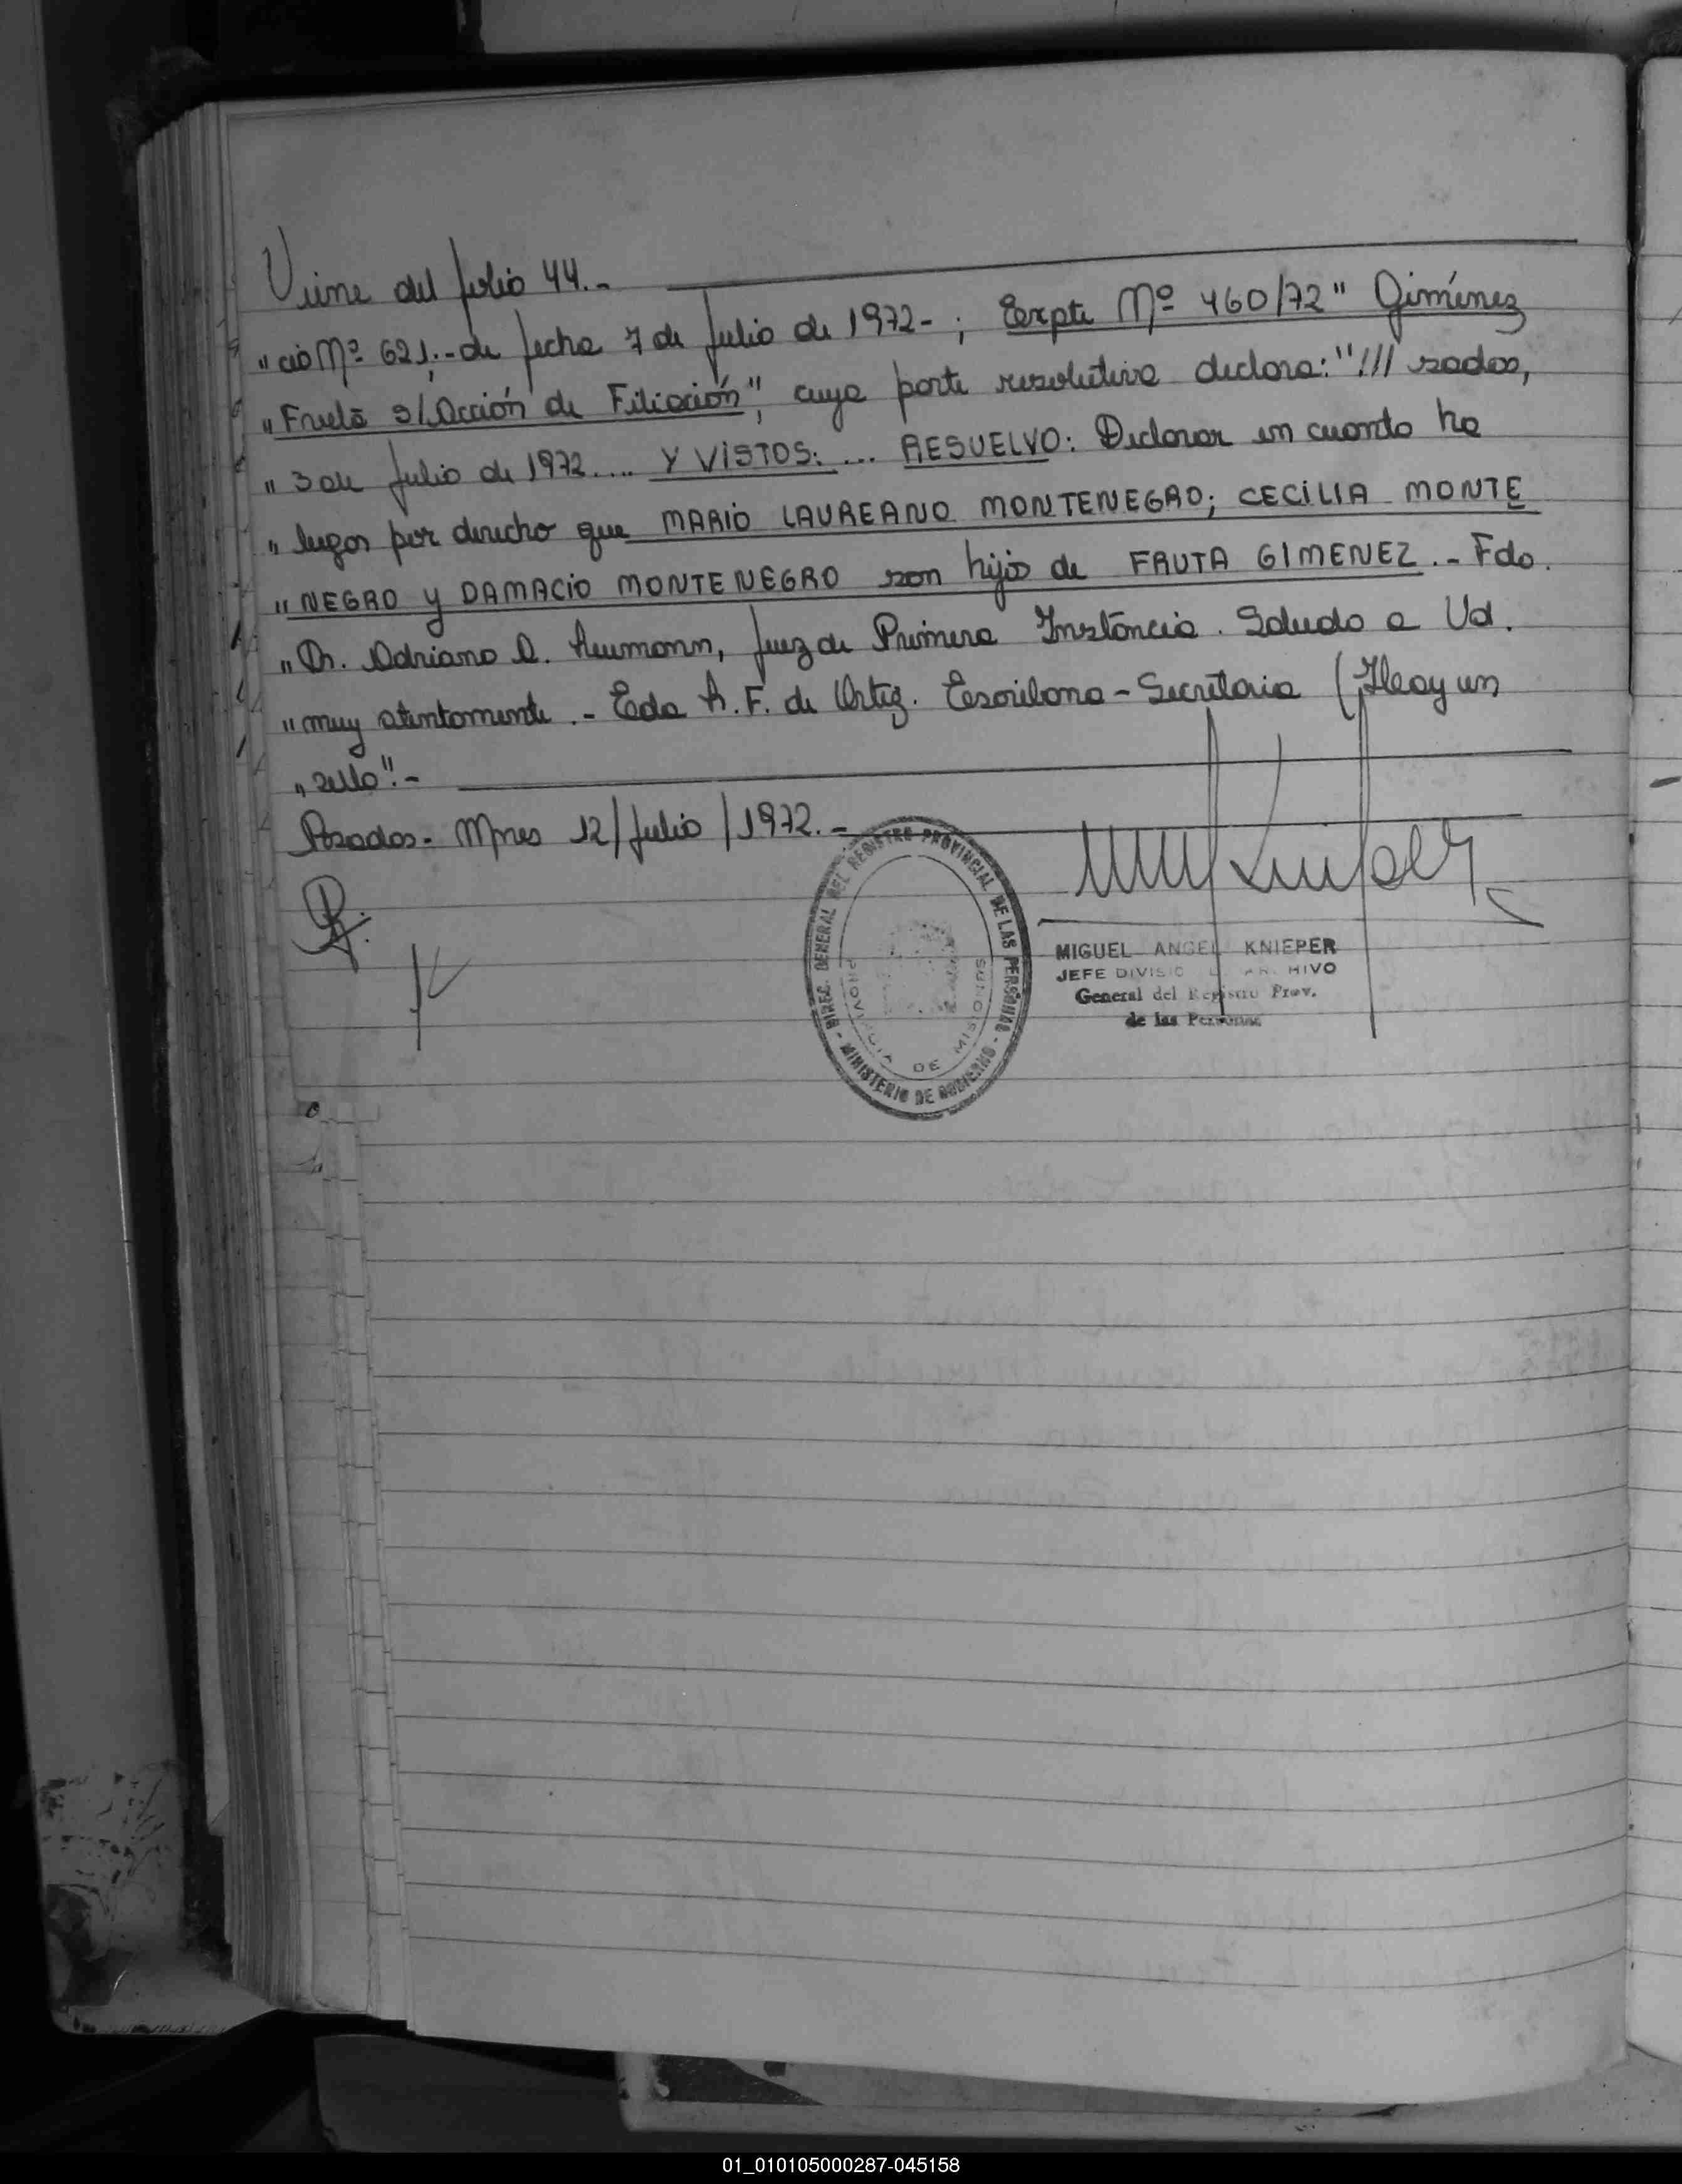 Viene del folio 44.-
"cio Nº 621.- de fecha 7 de Julio de 1972- ; Expte Nº 460/72" Giménez
"Fruta s/Acción de Filiación", cuya parte resolutiva declara: "/// sadas,
"3 de Julio de 1972.... Y VISTOS: ... RESUELVO: Declarar en cuanto ha
"lugar por derecho que MARIO LAUREANO MONTENEGRO; CECILIA MONTE
"NEGRO y DAMACIO MONTENEGRO son hijos de FRUTA GIMENEZ.- Fdo.
"Dr. Adriano A. Neumann, Juez de Primera Instancia. Saludo a Ud.
"muy atentamente.- Eda R. F. de Ortiz. Escribana - Secretaria (Hay un
"sello".-
Posadas - Mnes 12/Julio/1972.-
DIREC. GENERAL DEL REGISTRO PROVINCIAL DE LAS PERSONAS - MINISTERIO DE GOBIERNO -
PROVINCIA DE MISIONES
MIGUEL ANGEL KNIEPER
JEFE DIVISIO ARCHIVO
General del Registro Prov.
de las Personas
01_010105000287-045158